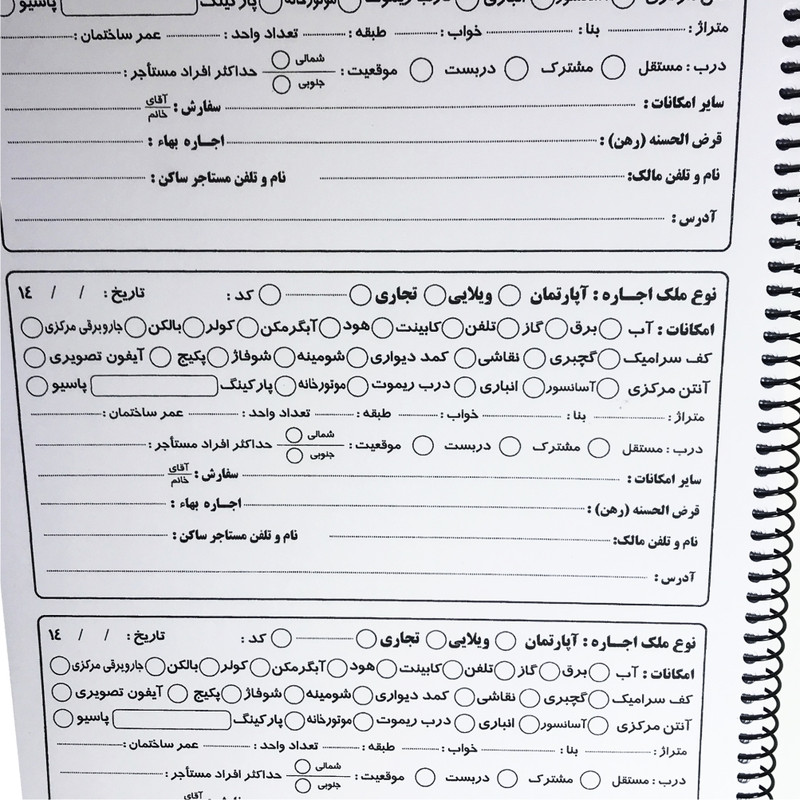 آسانسور انباری درب ریموت موتورخانه پارکینگ پاسیو
متراژ: بنا: خواب: طبقه: تعداد واحد: عمر ساختمان:
درب: مستقل مشترک دربست موقعیت: شمالی جنوبی حداکثر افراد مستأجر:
سایر امکانات: سفارش: آقای خانم
قرض الحسنه (رهن): اجاره بهاء:
نام و تلفن مالک: نام و تلفن مستاجر ساکن:
آدرس:
نوع ملک اجــاره: آپارتمان ویلایی تجاری کد: تاریخ: / / ١٤
امکانات: آب برق گاز تلفن کابینت هود آبگرمکن کولر بالکن جاروبرقی مرکزی
کف سرامیک گچبری نقاشی کمد دیواری شومینه شوفاژ پکیج آیفون تصویری
آنتن مرکزی آسانسور انباری درب ریموت موتورخانه پارکینگ پاسیو
متراژ: بنا: خواب: طبقه: تعداد واحد: عمر ساختمان:
درب: مستقل مشترک دربست موقعیت: شمالی جنوبی حداکثر افراد مستأجر:
سایر امکانات: سفارش: آقای خانم
قرض الحسنه (رهن): اجـاره بهاء:
نام و تلفن مالک: نام و تلفن مستاجر ساکن:
آدرس:
نوع ملک اجــاره: آپارتمان ویلایی تجاری کد: تاریخ: / / ١٤
امکانات: آب برق گاز تلفن کابینت هود آبگرمکن کولر بالکن جاروبرقی مرکزی
کف سرامیک گچبری نقاشی کمد دیواری شومینه شوفاژ پکیج آیفون تصویری
آنتن مرکزی آسانسور انباری درب ریموت موتورخانه پارکینگ پاسیو
متراژ: بنا: خواب: طبقه: تعداد واحد: عمر ساختمان:
درب: مستقل مشترک دربست موقعیت: شمالی جنوبی حداکثر افراد مستأجر:
آقای